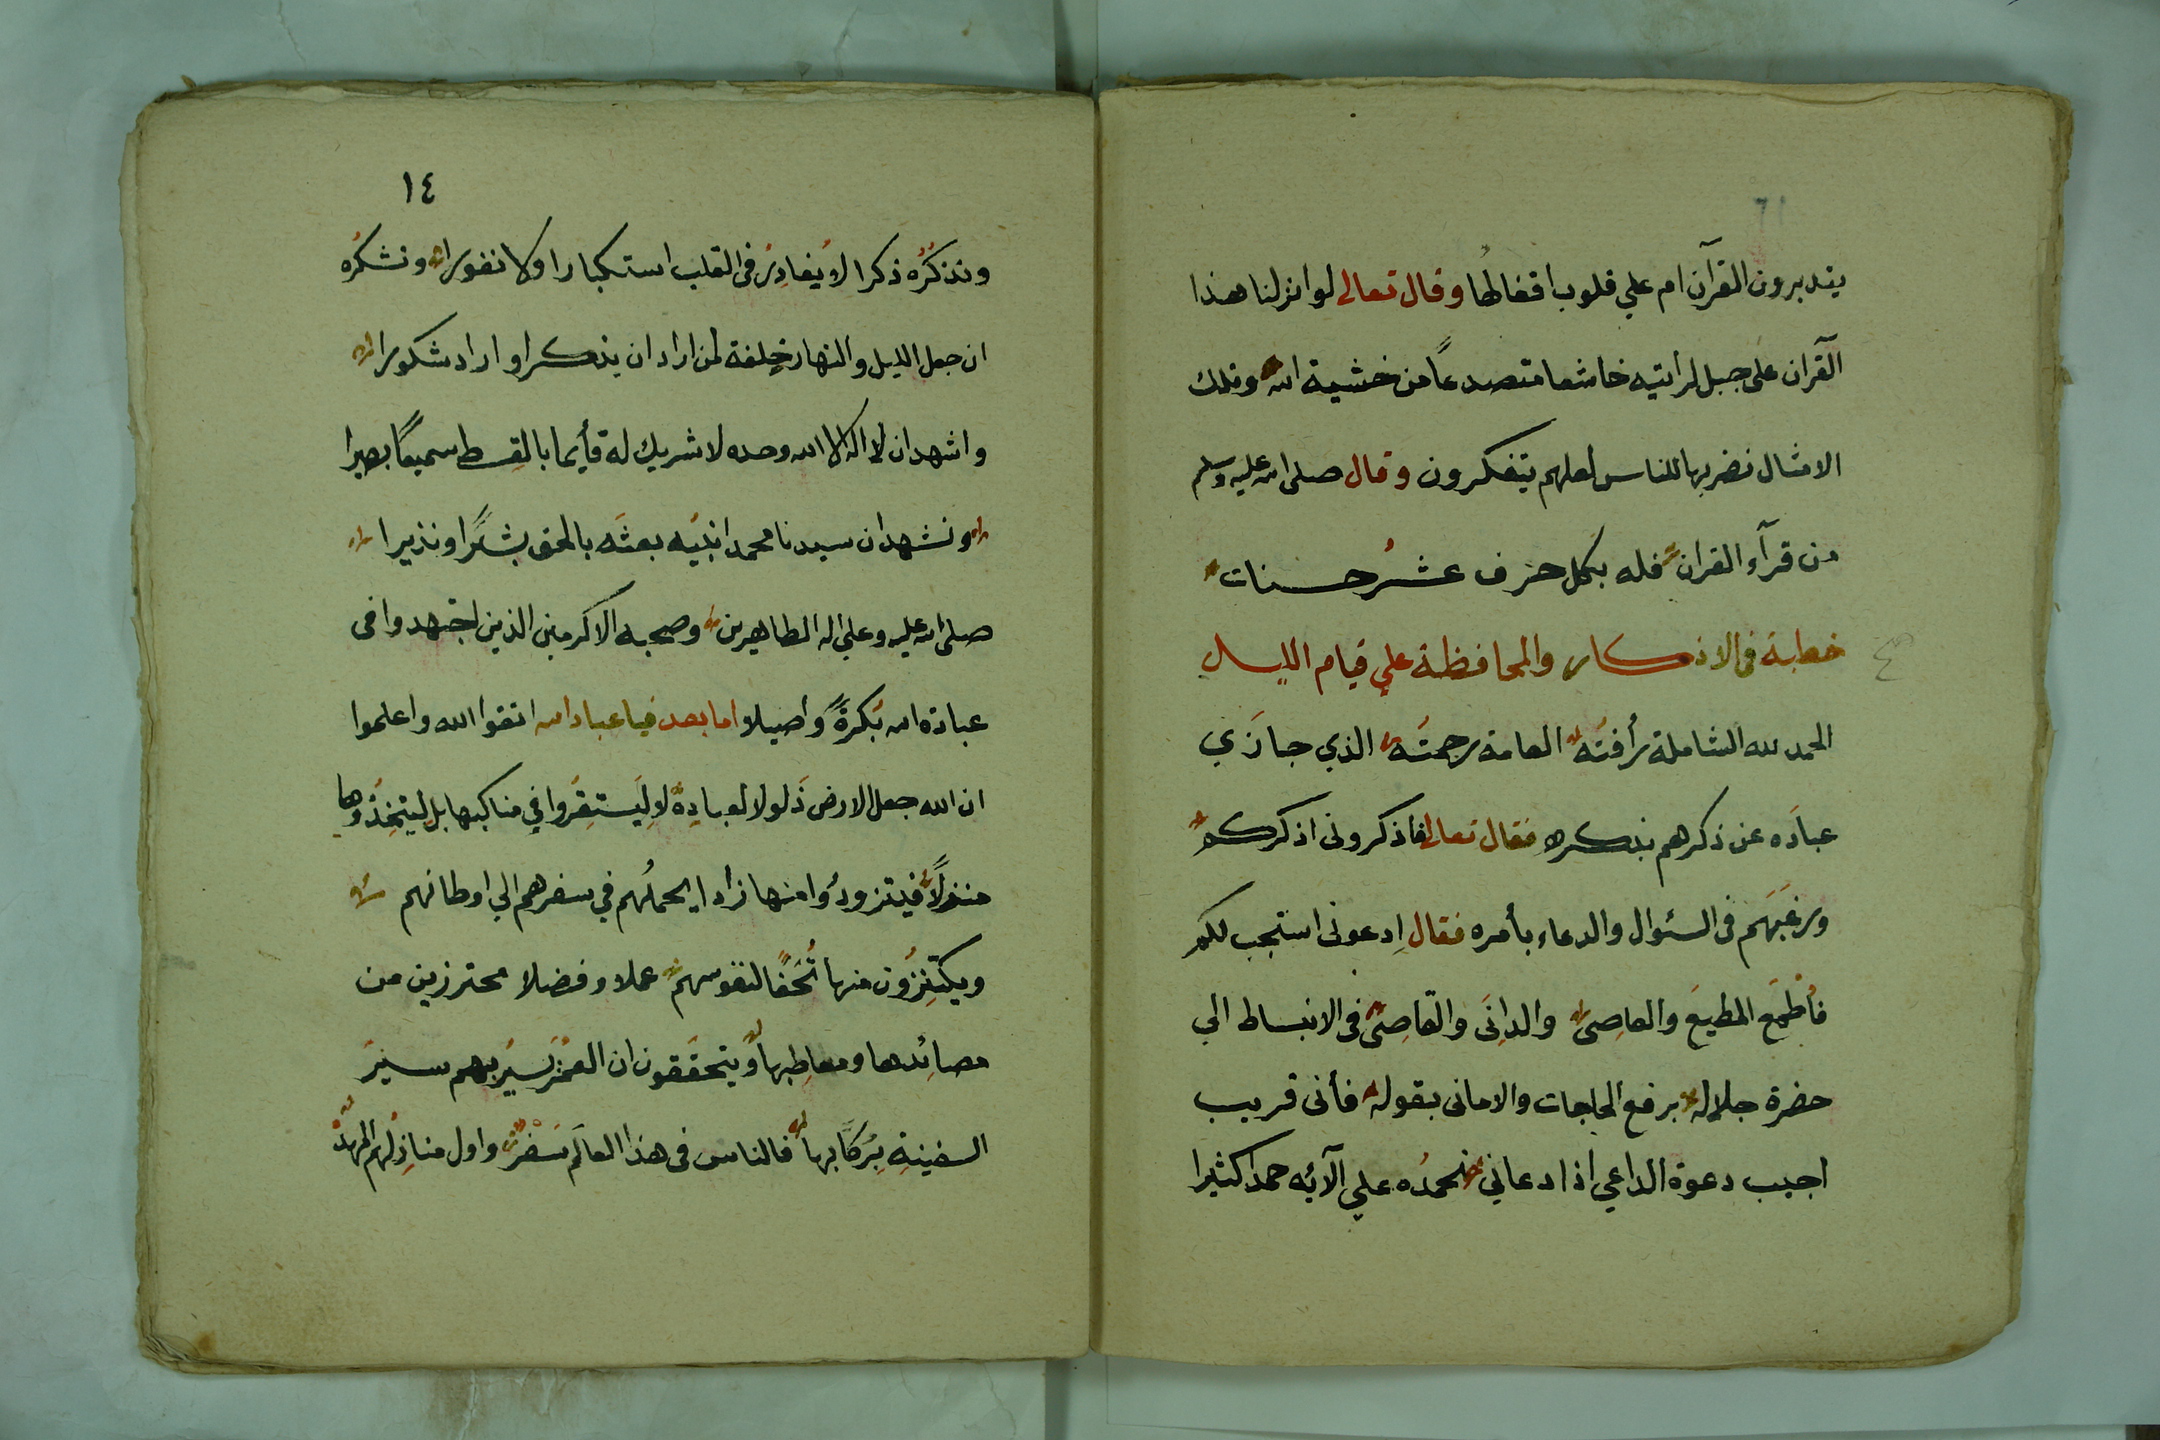 يتدبرون القرآن ام علي قلوب اقفالها وقال تعالى لوانزلنا هذا
القرآن على جبل لرأيته خاشعا متصدعاً من خشية الله وتلك
الامثال نضربها للناس لعلهم يتفكرون وقال صلى الله عليه وسلم
من قرآء القران فله بكل حرف عشرُ حسنات
خطبة فى الاذكار والمحافظة علي قيام الليل
الحمد لله الشاملة رأفتَه العامة رحمتَه الذي جازَي
عبادَه عن ذكرهم بذكره فقال تعالى فاذكرونى اذكركم
ورغبَهم فى السئوال والدعاء بأمره فقال اِدعونى استجب لكم
فأطمَع المطيعَ والعاصِى والدانَى والقاصِىَ فى الانبساط الي
حضرة جلاله برفع الحاجات والامانى بقوله فأنى قريب
اجيب دعوة الداعي اذا دعاني نحمدُه علي الآئه حمدا كثيرا
١٤
ونذكُرُه ذكرا لا يُغادِرُ فى القلب استكبارا ولا نفورا ونشكُره
ان جعل الليل والنهار خِلفة لمن اراد ان يذكر او اراد شكورا
واشهد ان لا اله الا الله وحده لا شريك له قأيما بالقِسط سميعًا بصيرا
ونشهد ان سيدنا محمدا نبيَه بعثَه بالحق بشيرًا ونذيرا
صلى الله عليه وعلي اله الطاهرين وصحبه الاكرمين الذين اجتهدوا فى
عبادة الله بُكرةً واصيلا اما بعد فيا عباد الله اتقوا الله واعلموا
ان الله جعل الارض ذَلولا لعبادِهِ لا لِيَستقِرَوا في مناكبها بل ليتخِذُوها
منزلاً فيتزودُوا منها زادا يحملُهم في سفرهم الي اوطانهم
ويكتنِزُون منها تُحَفًا لنفوسهم عملا وفضلا محترزين من
مصائِدها ومعاطِبها ويتحقَقون ان العُمُرَ يسيرُ بهم سيرَ
السفينةِ بِرُكَّابها فالناس فى هذا العالَم سَفْرٌ واول منازِلُهم المهدُ